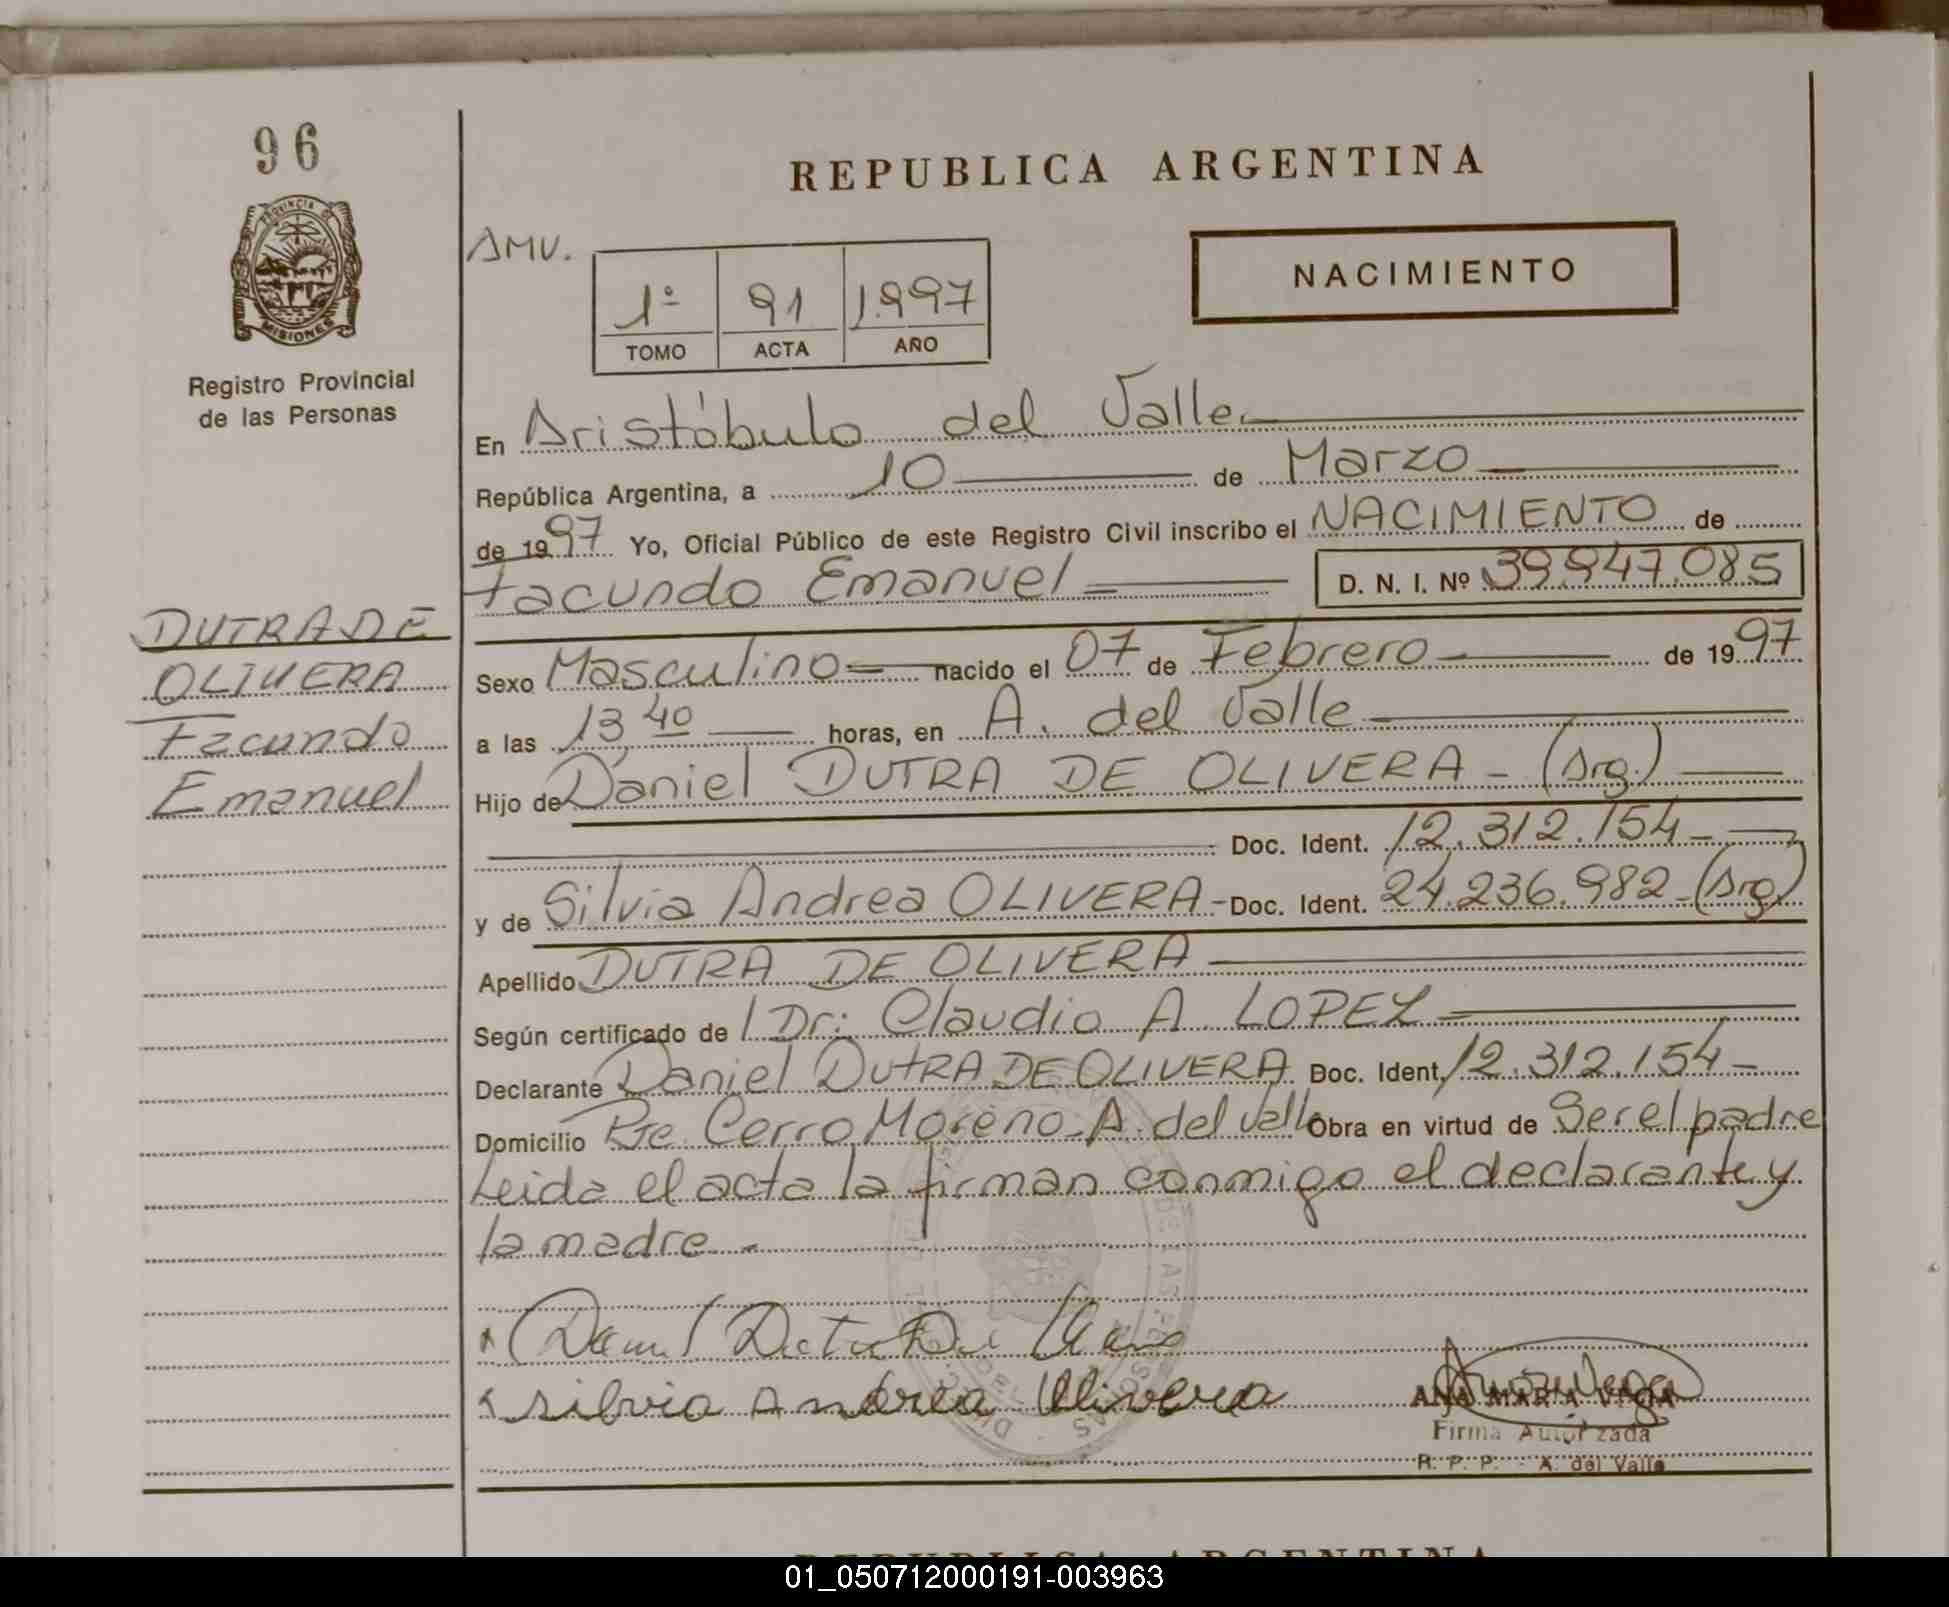 96
PROVINCIA DE
MISIONES
Registro Provincial
de las Personas
DUTRA DE
OLIVERA
Facundo
Emanuel
REPUBLICA ARGENTINA
AMV.
1º 91 1.997
TOMO ACTA AÑO
NACIMIENTO
En Aristóbulo del Valle
República Argentina, a 10 de Marzo
de 1997 Yo, Oficial Público de este Registro Civil inscribo el NACIMIENTO de
Facundo Emanuel D. N. I. Nº 39.947.085
Sexo Masculino nacido el 07 de Febrero de 1997
a las 13,40 horas, en A. del Valle
Hijo de Daniel DUTRA DE OLIVERA - (Arg.)
Doc. Ident. 12.312.154-
y de Silvia Andrea OLIVERA - Doc. Ident. 24.236.982-(Arg)
Apellido DUTRA DE OLIVERA
Según certificado de Dr: Claudio A. LOPEZ
Declarante Daniel DUTRA DE OLIVERA Doc. Ident. 12.312.154-
Domicilio Pje. Cerro Moreno-A. del Valle Obra en virtud de Ser el padre
Leida el acta la firman conmigo el declarante y
la madre.-
Silvia Andrea Olivera
ANA MARIA VEGA
Firma Autorizada
R. P. P. - A. del Valle
REPUBLICA ARGENTINA
01_050712000191-003963